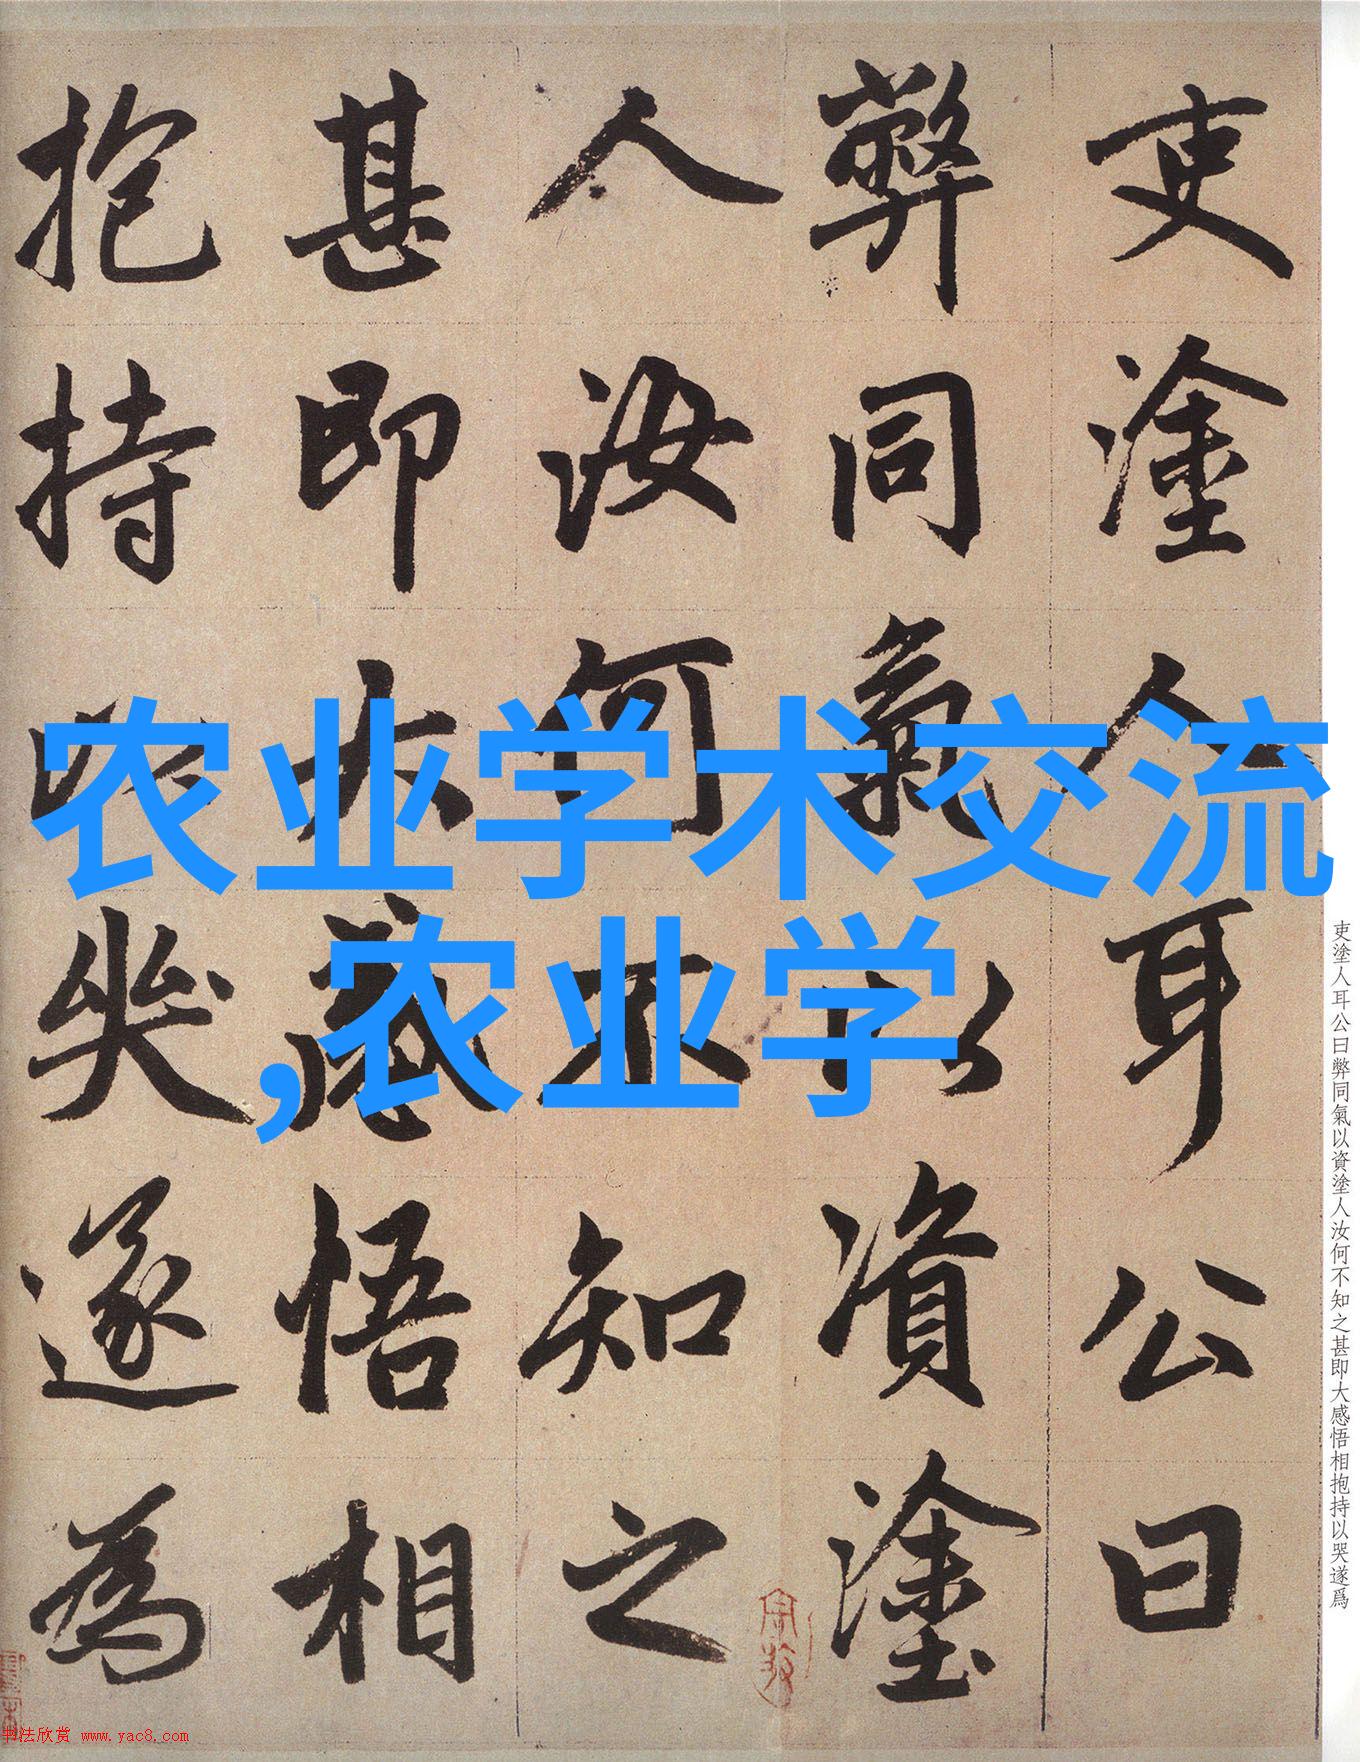 吏塗人耳公曰
弊同氣以資塗
人汝何不知之
甚即大感悟相
抱持以哭遂為
农业学术交流
,农业学
吏塗人耳公曰弊同氣以資塗人汝何不知之甚即大感悟相抱持以哭遂爲
书法欣赏 www.yac8.com